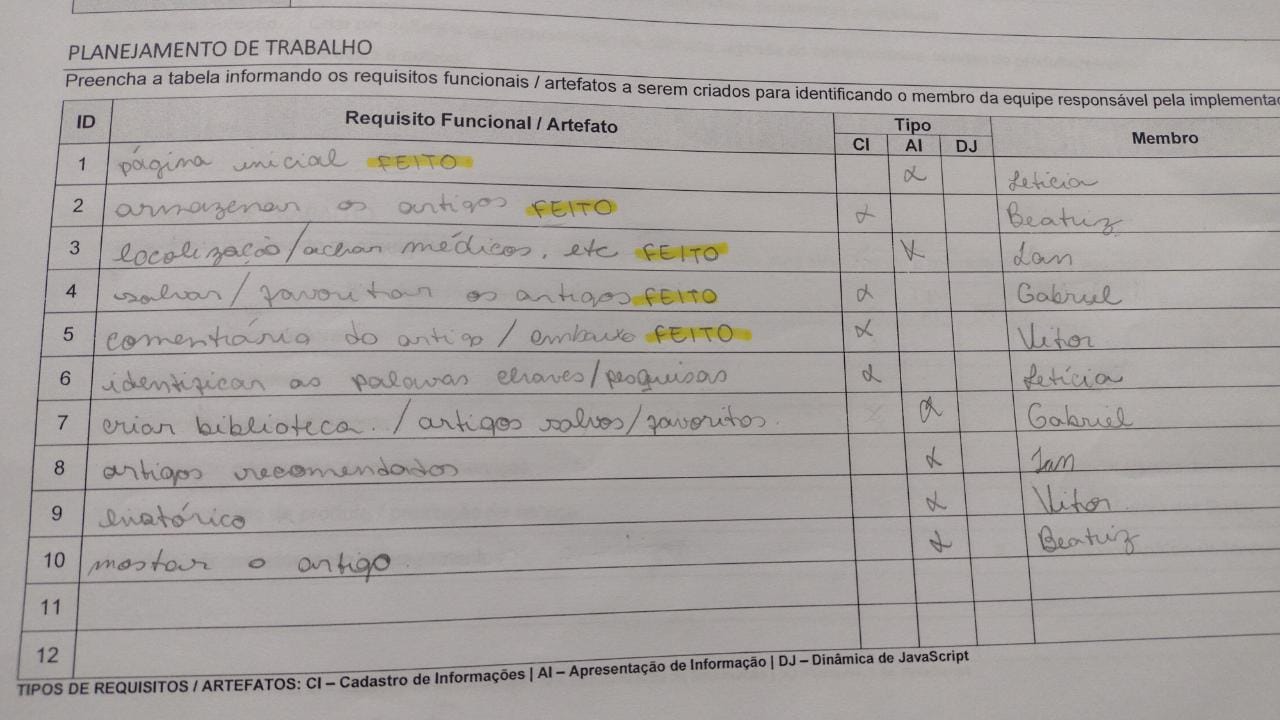 PLANEJAMENTO DE TRABALHO
Preencha a tabela informando os requisitos funcionais / artefatos a serem criados para identificando o membro da equipe responsável pela implementaç
ID Requisito Funcional / Artefato Tipo Membro
CI AI DJ
1 página inicial FEITO x Leticia
2 armazenar os artigos FEITO x Beatriz
3 localização/achar médicos, etc FEITO x Ian
4 salvar/favoritar os artigos FEITO x Gabriel
5 comentário do artigo / embaixo FEITO x Vitor
6 identificar as palavras chaves/pesquisas x Letícia
7 criar biblioteca. / artigos salvos/favoritos. x Gabriel
8 artigos recomendados x Ian
9 x Vitor.
10 mostar o artigo. x Beatriz
11
12
TIPOS DE REQUISITOS / ARTEFATOS: CI – Cadastro de Informações | AI – Apresentação de Informação | DJ – Dinâmica de JavaScript